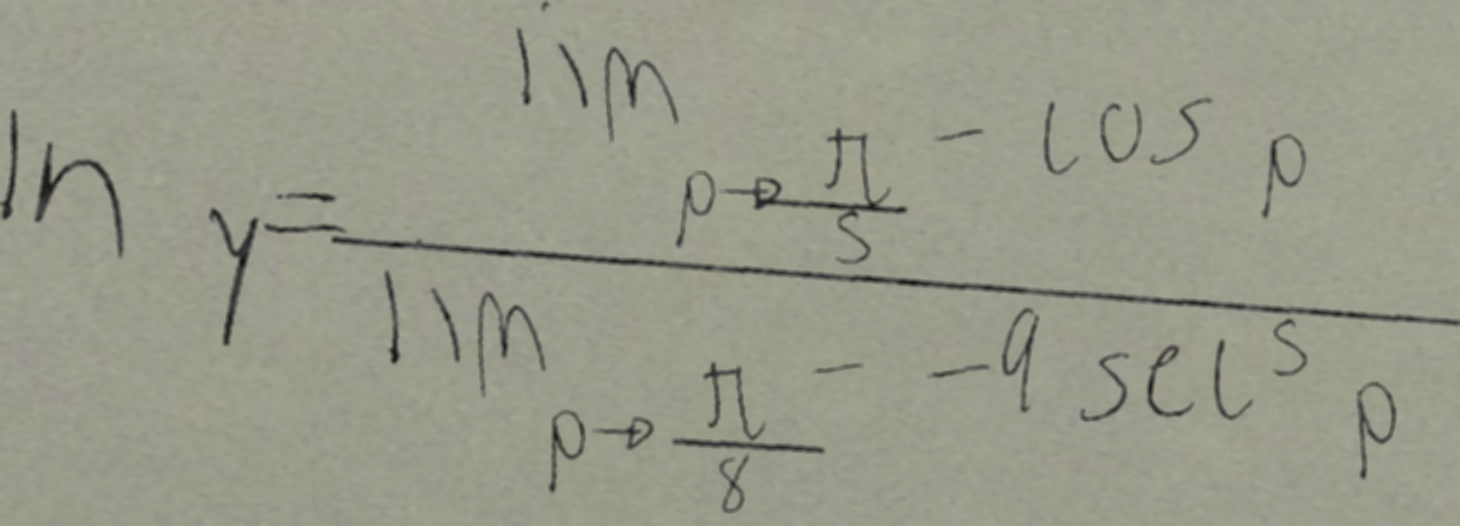 \ln y = \frac{\lim_{p \to \frac{\pi}{5}^-} \cos p}{\lim_{p \to \frac{\pi}{8}^-} -9 \sec^5 p}